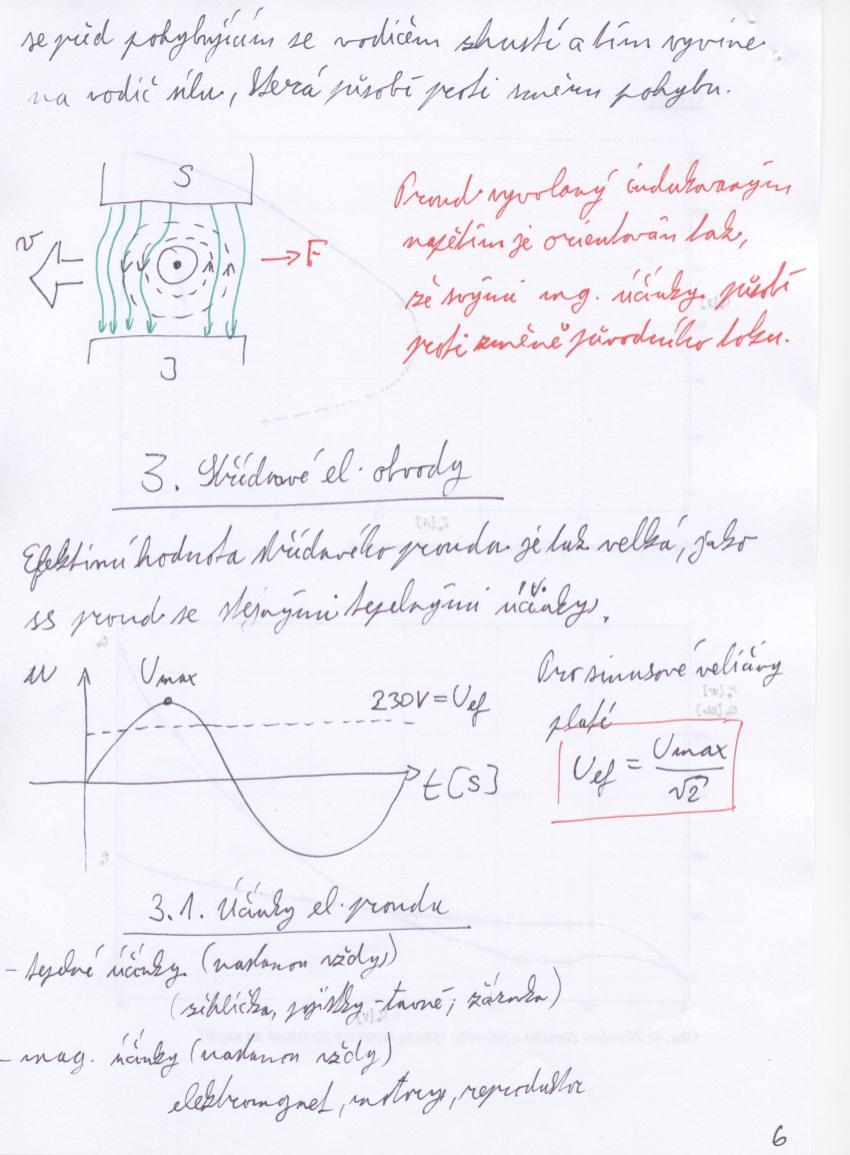 se před pohybujícím se vodičem zhustí a tím vyvine
na vodič sílu, která působí proti směru pohybu.
S
v
F
J
Proud vyvolaný indukovaným
napětím je orientován tak,
že svými mg. účinky působí
proti změně původního toku.
3. Střídavé el. obvody
Efektivní hodnota střídavého proudu je tak velká, jako
ss proud se stejnými tepelnými účinky.
u
Umax
230V = Uef
t [s]
Pro sinusové veličiny
platí
Uef = Umax / √2
3.1. Účinky el. proudu
- tepelné účinky (nastanou vždy)
(žehlička, pojistky - tavné, žárovka)
- mag. účinky (nastanou vždy)
elektromagnet, motory, reproduktor
6